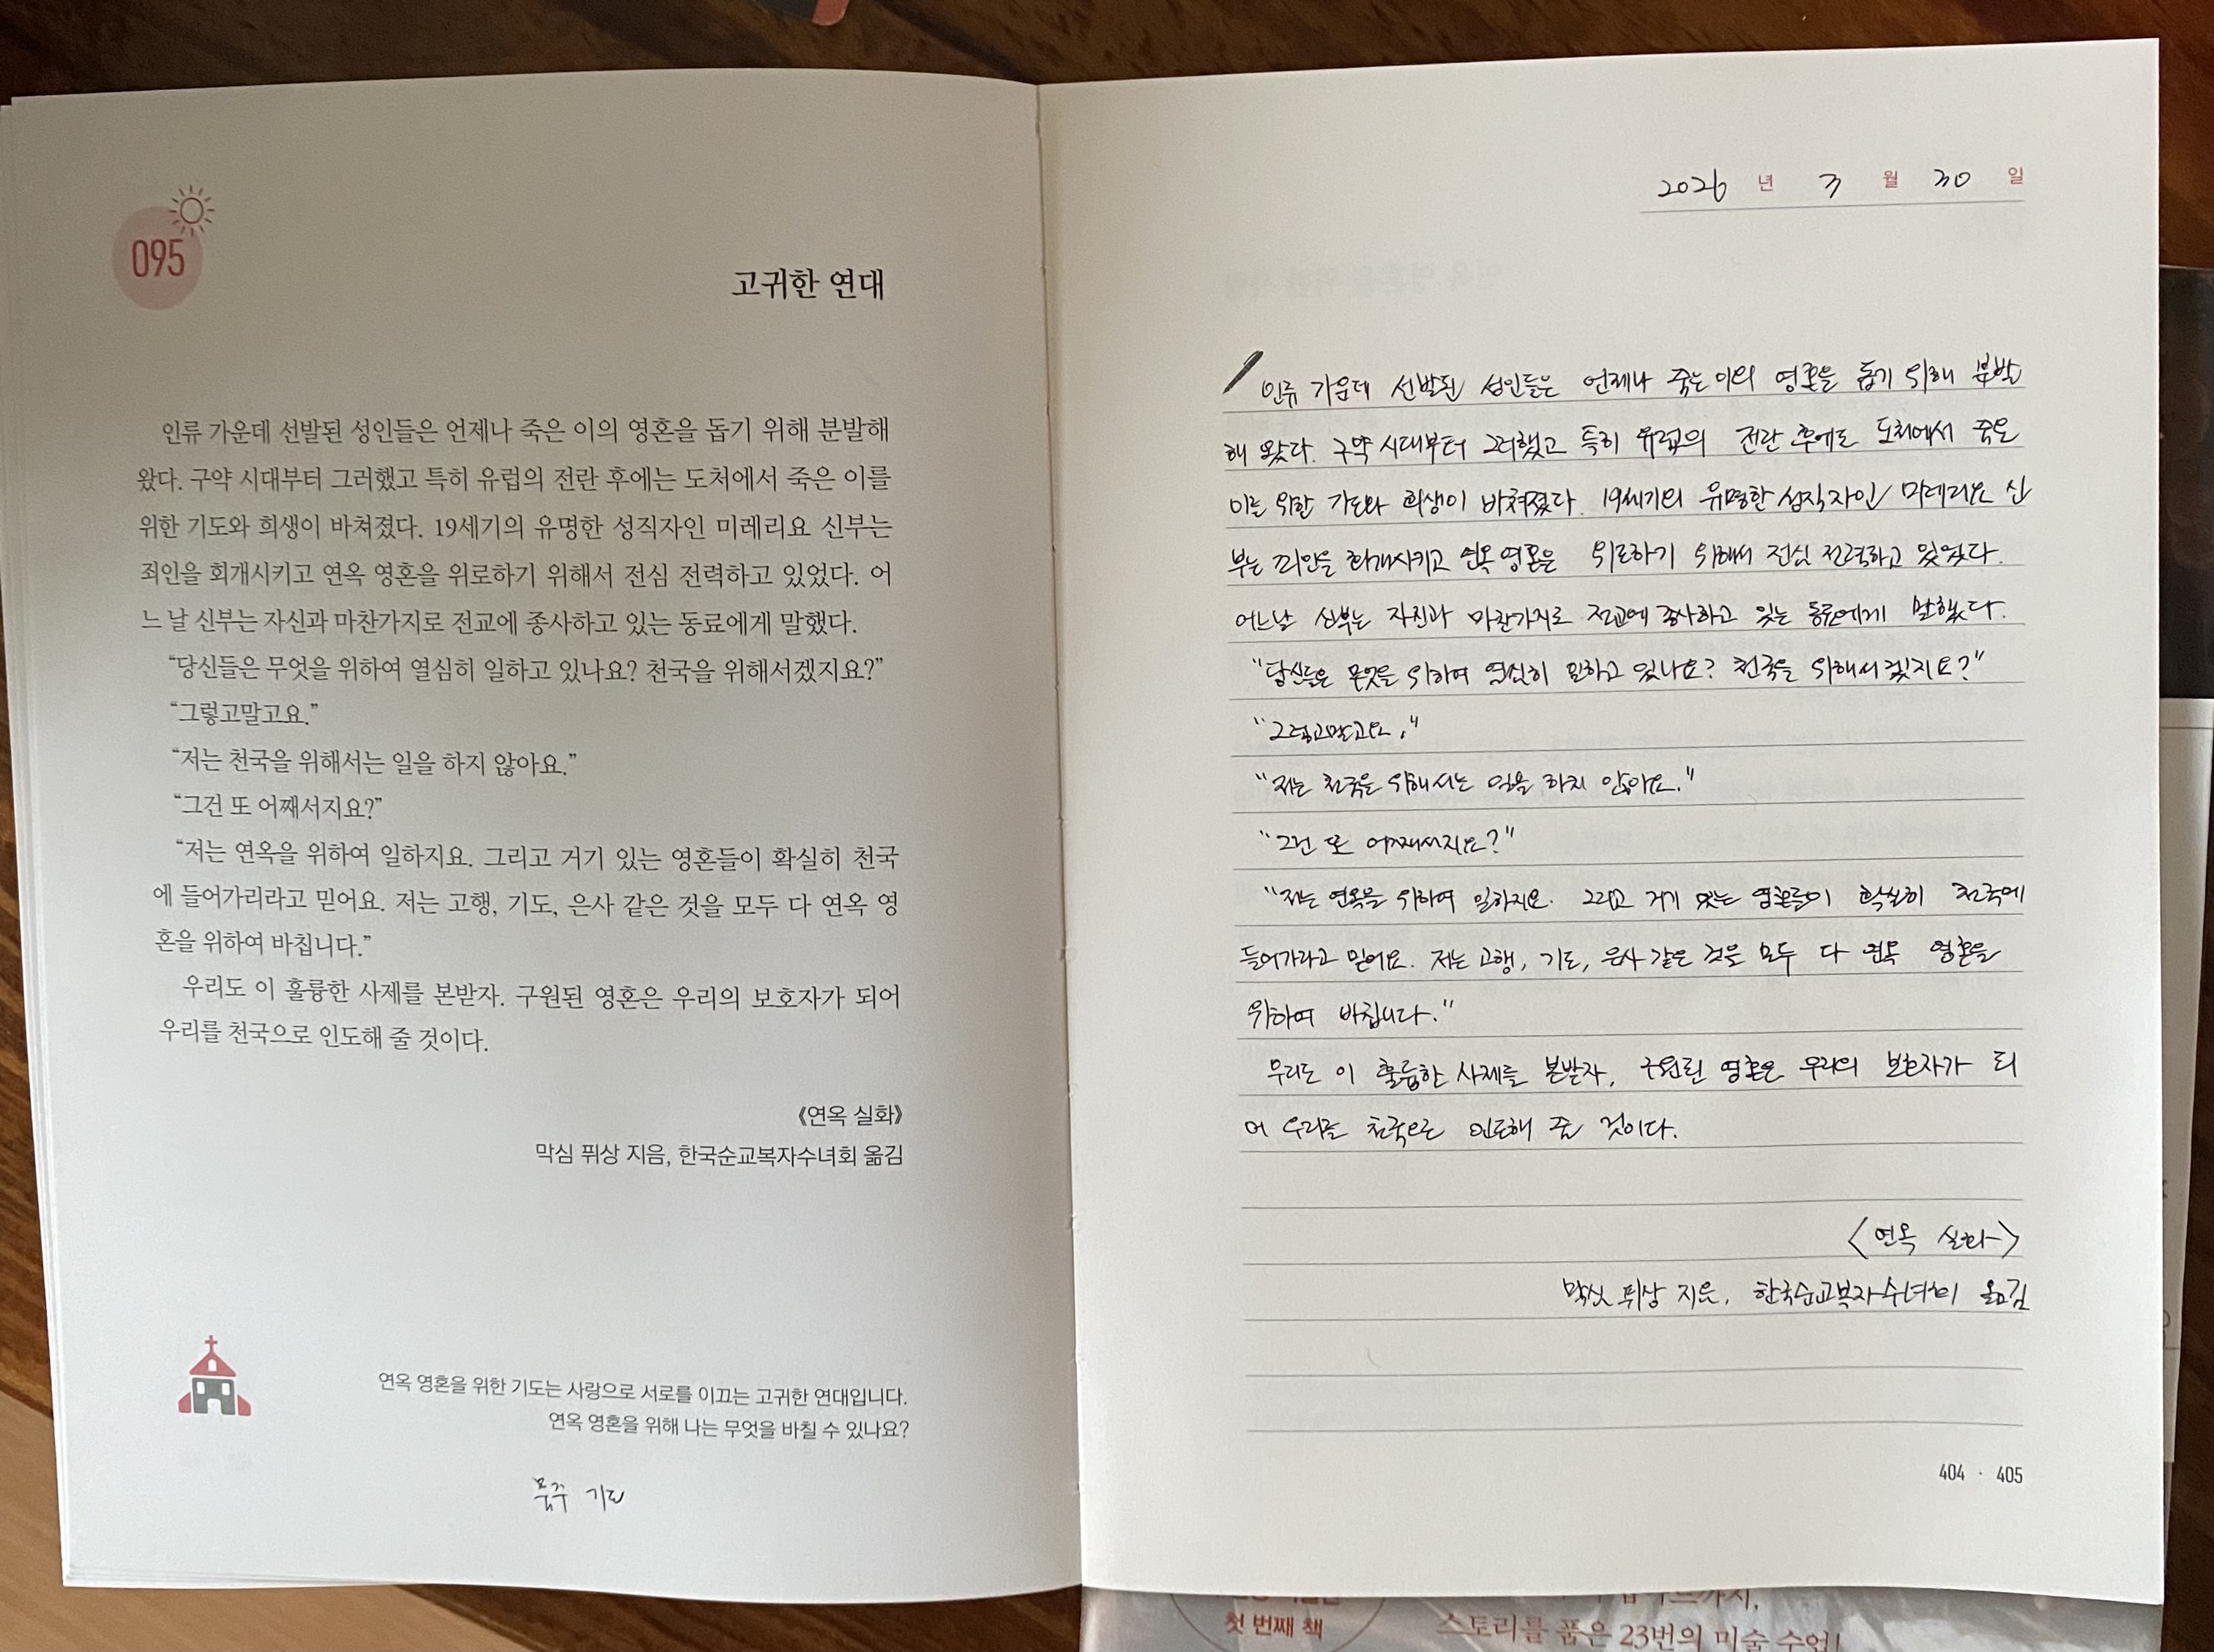 095
고귀한 연대
인류 가운데 선발된 성인들은 언제나 죽은 이의 영혼을 돕기 위해 분발해
왔다. 구약 시대부터 그러했고 특히 유럽의 전란 후에는 도처에서 죽은 이를
위한 기도와 희생이 바쳐졌다. 19세기의 유명한 성직자인 미레리요 신부는
죄인을 회개시키고 연옥 영혼을 위로하기 위해서 전심 전력하고 있었다. 어
느 날 신부는 자신과 마찬가지로 전교에 종사하고 있는 동료에게 말했다.
“당신들은 무엇을 위하여 열심히 일하고 있나요? 천국을 위해서겠지요?”
“그렇고말고요.”
“저는 천국을 위해서는 일을 하지 않아요.”
“그건 또 어째서지요?”
“저는 연옥을 위하여 일하지요. 그리고 거기 있는 영혼들이 확실히 천국
에 들어가리라고 믿어요. 저는 고행, 기도, 은사 같은 것을 모두 다 연옥 영
혼을 위하여 바칩니다.”
우리도 이 훌륭한 사제를 본받자. 구원된 영혼은 우리의 보호자가 되어
우리를 천국으로 인도해 줄 것이다.
《연옥 실화》
막심 퓌상 지음, 한국순교복자수녀회 옮김
연옥 영혼을 위한 기도는 사랑으로 서로를 이끄는 고귀한 연대입니다.
연옥 영혼을 위해 나는 무엇을 바칠 수 있나요?
묵주 기도
2026 년 3 월 30 일
인류 가운데 선발된 성인들은 언제나 죽은 이의 영혼을 돕기 위해 분발
해 왔다. 구약 시대부터 그러했고 특히 유럽의 전란 후에도 도처에서 죽은
이를 위한 기도와 희생이 바쳐졌다. 19세기의 유명한 성직자인 미레리요 신
부는 죄인을 회개시키고 연옥 영혼은 위로하기 위해서 전심 전력하고 있었다.
어느날 신부는 자신과 마찬가지로 전교에 종사하고 있는 동료에게 말했다.
"당신들은 무엇을 위하여 열심히 일하고 있나요? 천국을 위해서겠지요?"
"그렇고말고요."
"저는 천국을 위해서는 일을 하지 않아요."
"그건 또 어째서지요?"
"저는 연옥을 위하여 일하지요. 그리고 거기 있는 영혼들이 확실히 천국에
들어가라고 믿어요. 저는 고행, 기도, 은사 같은 것을 모두 다 연옥 영혼을
위하여 바칩니다."
우리도 이 훌륭한 사제를 본받자. 구원된 영혼은 우리의 보호자가 되
어 우리를 천국으로 인도해 줄 것이다.
<연옥 실화>
막심 퓌상 지음, 한국순교복자수녀회 옮김
404 · 405
첫 번째 책
스토리를 품은 23번의 미술 수업!